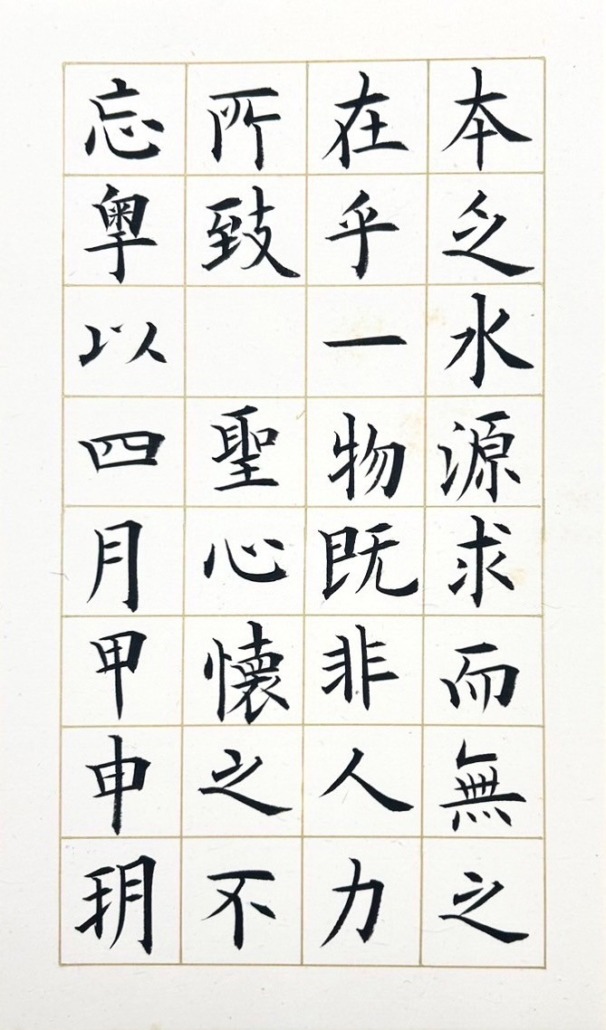 本乏水源求而無之
在乎一物既非人力
所致 聖心懷之不
忘粤以四月甲申朔